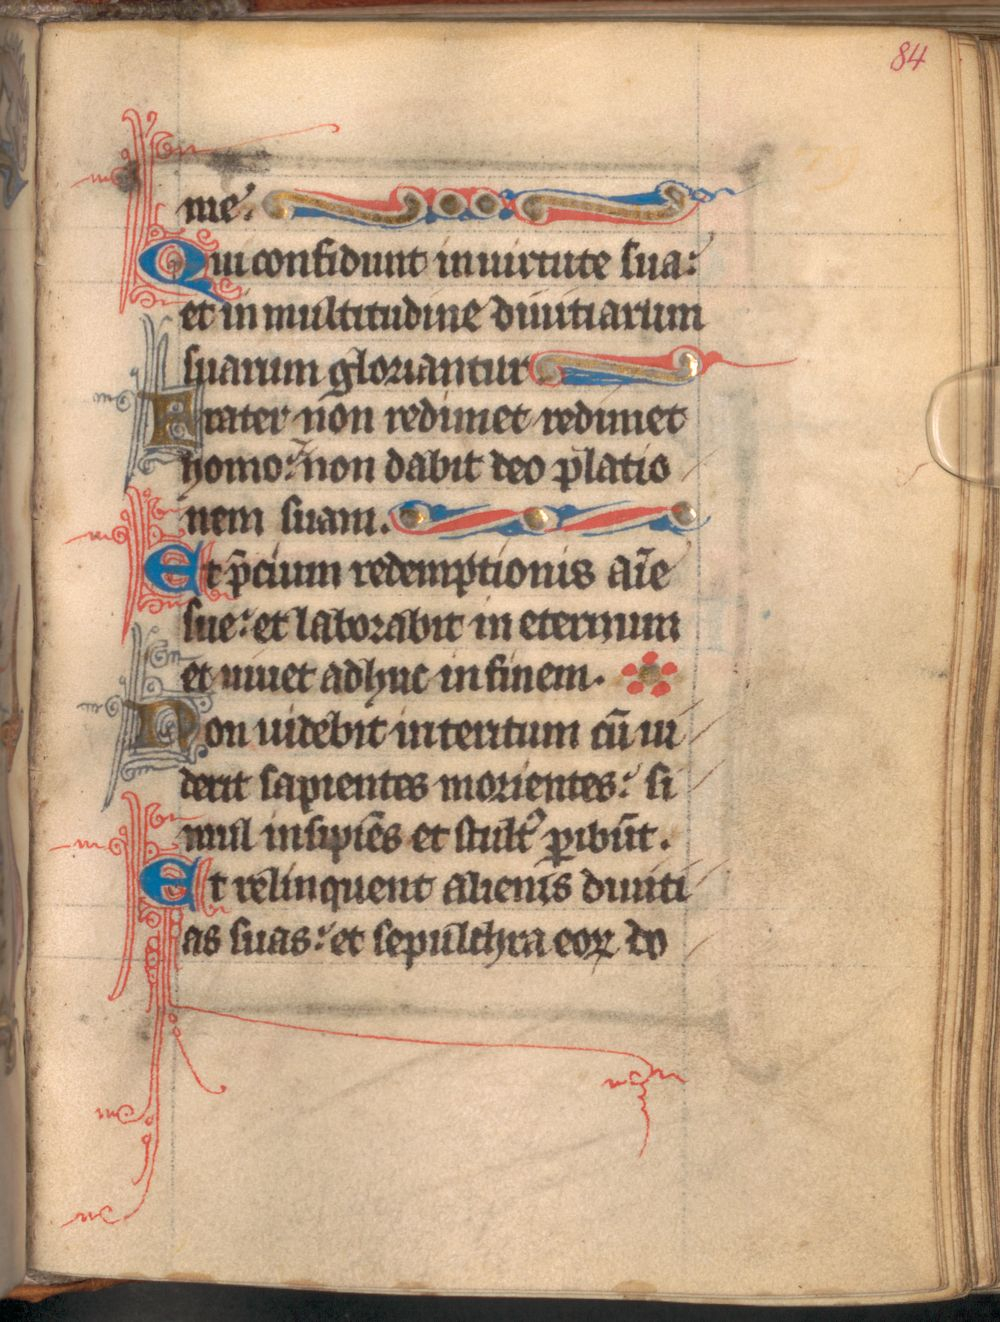 84
me.
Qui confidunt in uirtute sua:
et in multitudine diuitiarum
suarum gloriantur
Frater non redimet redimet
homo: non dabit deo p̄latio
nem suam.
Et p̄cium redemptionis aīe
sue: et laborabit in eternum
et uiuet adhuc in finem.
Non uidebit interitum cū ui
derit sapientes morientes: si
mul insipiēs et stult᾿ ꝑibūt.
Et relinquent alienis diuiti
as suas: et sepulchra eoꝝ do